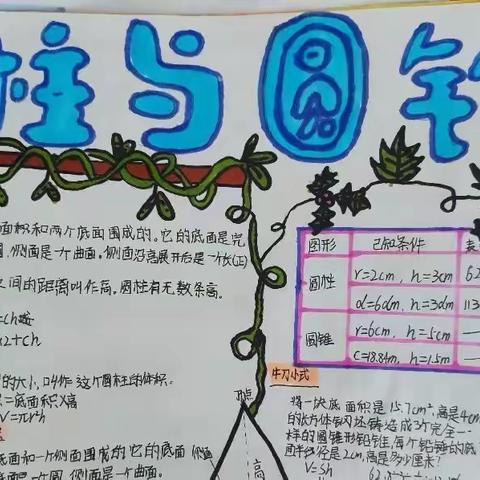 柱与圆锥
面积和两个底面围成的。它的底面是完
侧面是一个曲面。侧面沿高展开后是一个长(正)
之间的距离叫作高。圆柱有无数条高。
=ch
×2+ch
的大小,叫作这个圆柱的体积。
=底面积×高
V=πr²h
底面和一个侧面围成的它的底面
底面是一个圆,侧面是一个曲面。
顶点
高
图形 已知条件 表
圆柱 r=2cm, h=3cm 62
d=6dm, h=3dm 113
圆锥 r=6cm, h=5cm —
C=18.84m, h=1.5m —
牛刀小试
将一块底面积是15.7cm²,高是4cm
的长方体钢坯铸造成3个完全一
样的圆锥形铅锤,每个铅锤的底
面半径是2cm,高是多少厘米?
V=Sh